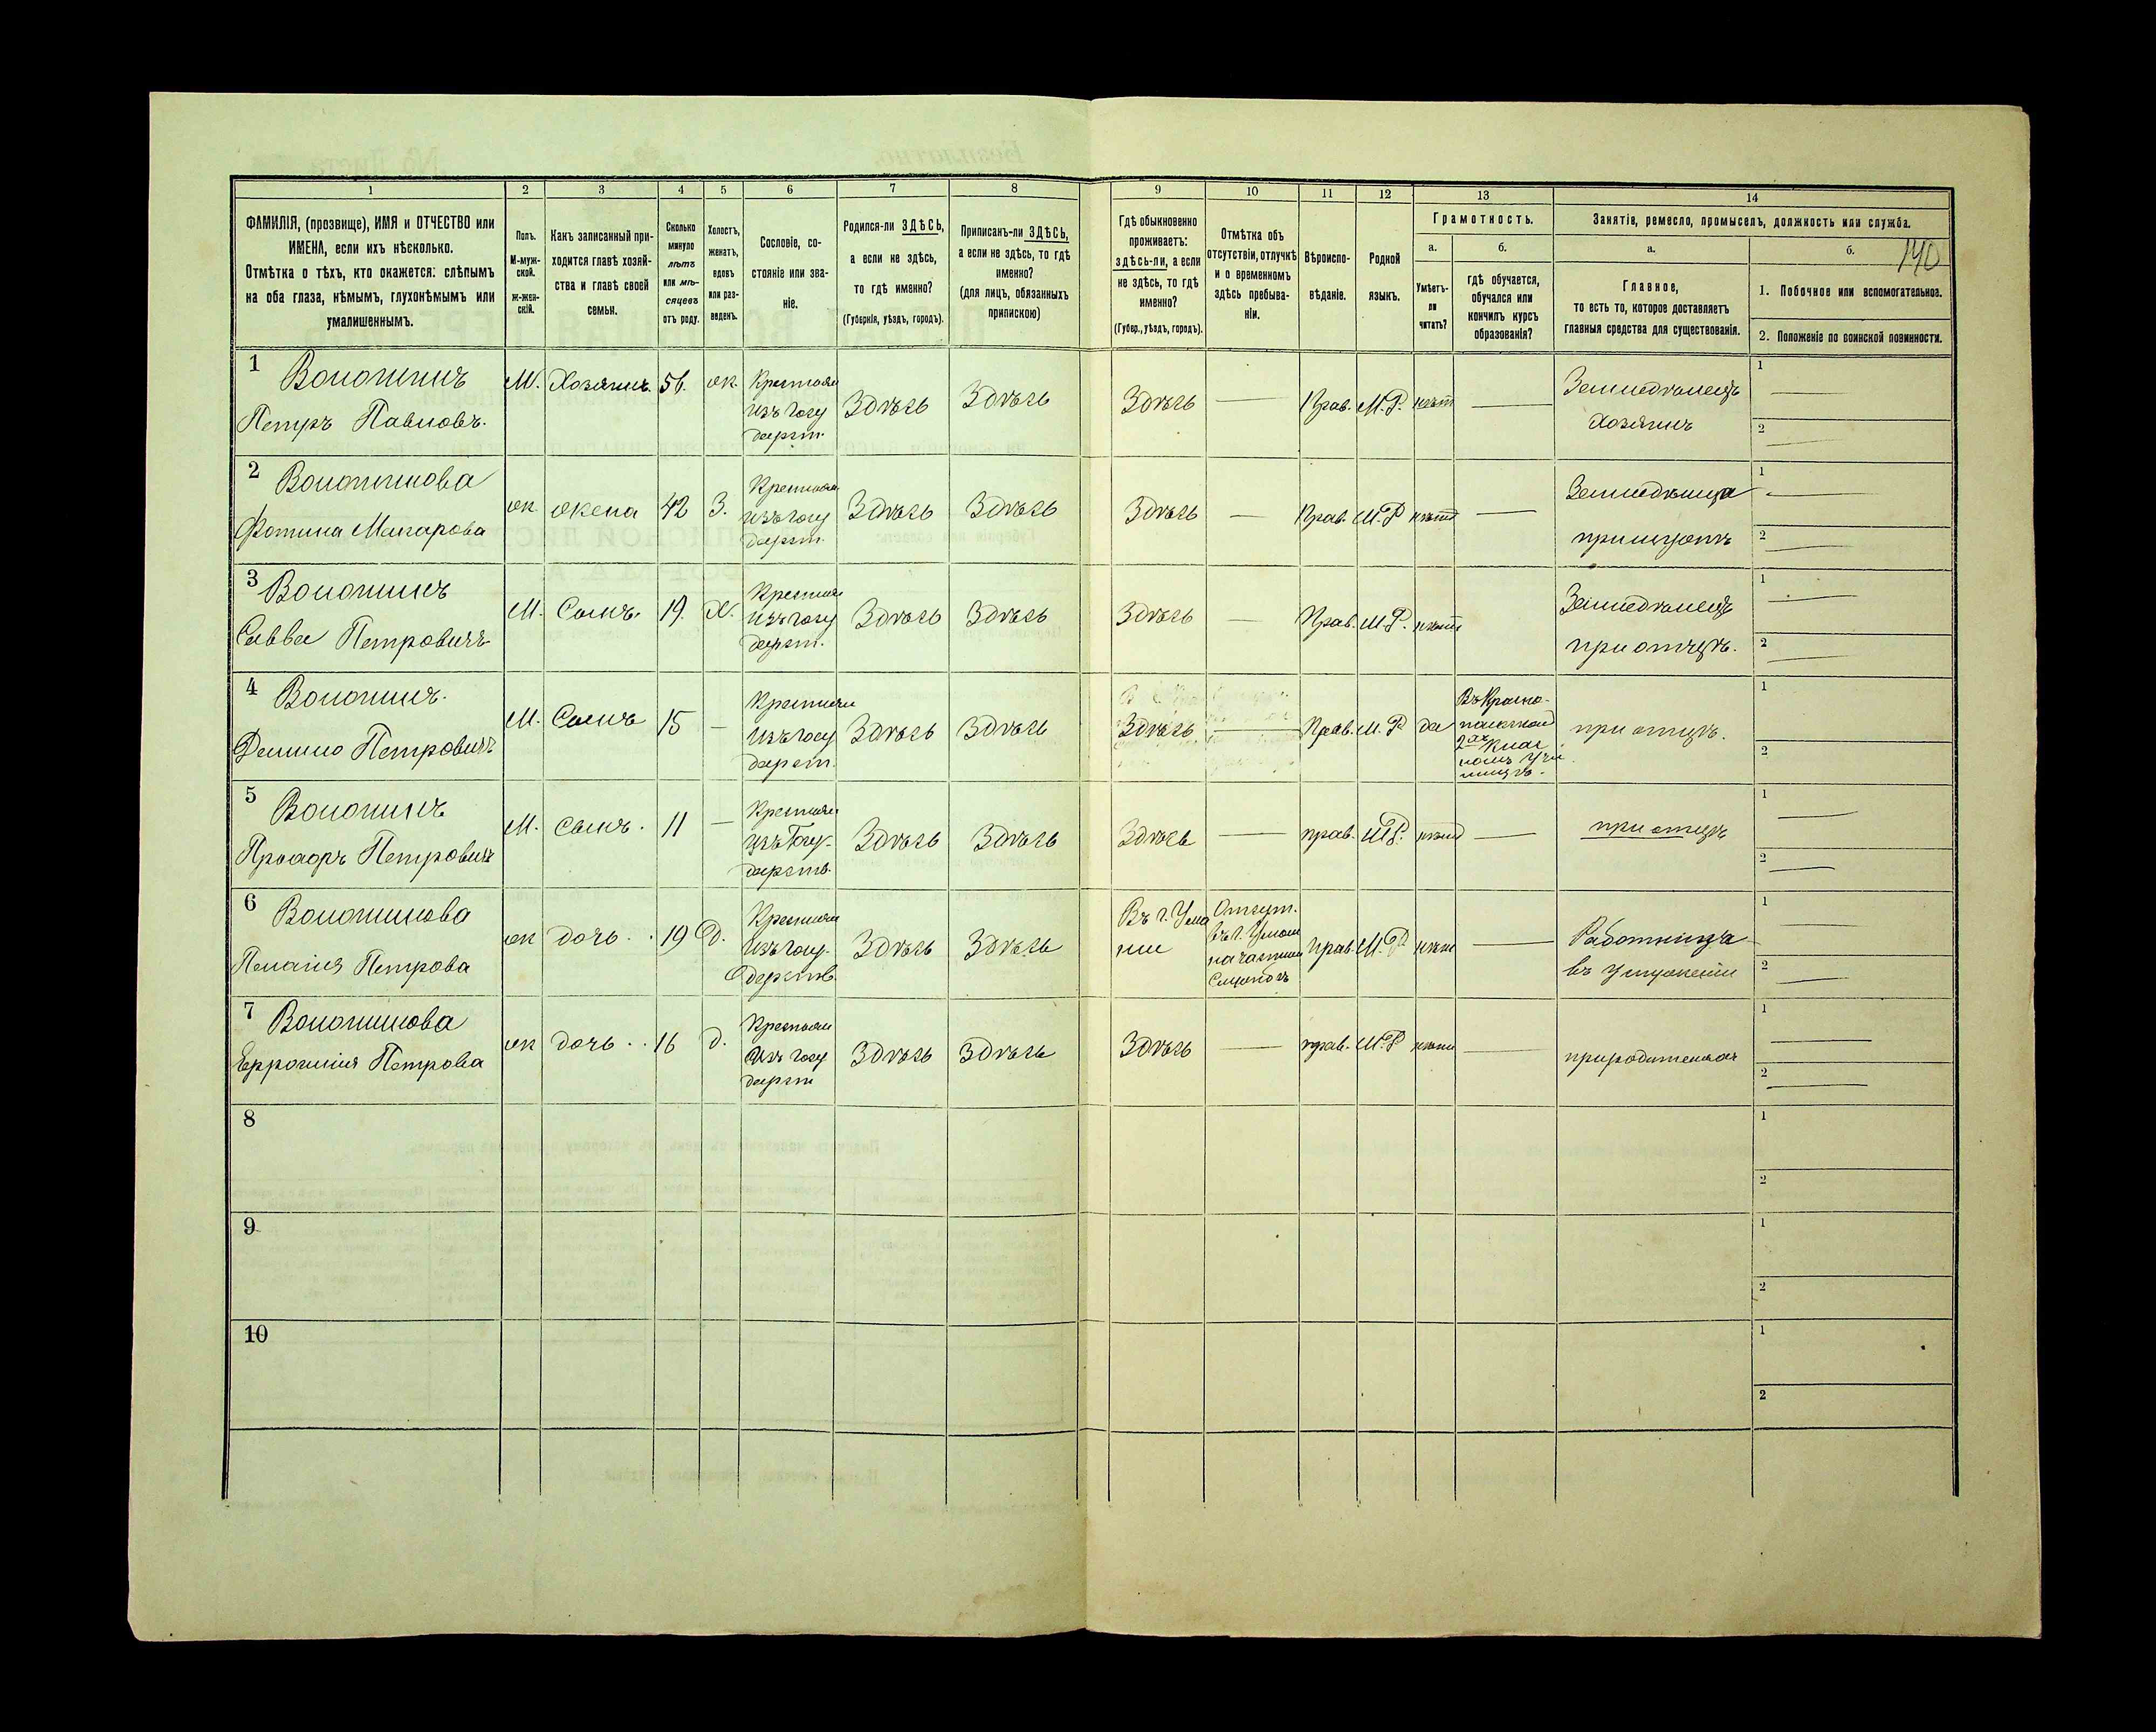 140
1
2
3
4
5
6
7
8
9
10
11
12
13
14
ФАМИЛІЯ, (прозвище), ИМЯ и ОТЧЕСТВО или
ИМЕНА, если ихъ нѣсколько.
Отмѣтка о тѣхъ, кто окажется: слѣпымъ
на оба глаза, нѣмымъ, глухонѣмымъ или
умалишеннымъ.
Полъ.
М-муж-
ской.
Ж-жен-
скій.
Какъ записанный при-
ходится главѣ хозяй-
ства и главѣ своей
семьи.
Сколько
минуло
лѣтъ
или мѣ-
сяцевъ
отъ роду.
Холостъ,
женатъ,
вдовъ
или раз-
веденъ.
Сословіе, со-
стояніе или зва-
ніе.
Родился-ли ЗДѢСЬ,
а если не здѣсь,
то гдѣ именно?
(Губернія, уѣздъ, городъ).
Приписанъ-ли ЗДѢСЬ,
а если не здѣсь, то гдѣ
именно?
(для лицъ, обязанныхъ
припискою)
Гдѣ обыкновенно
проживаетъ:
здѣсь-ли, а если
не здѣсь, то гдѣ
именно?
(Губер., уѣздъ, городъ).
Отмѣтка объ
отсутствіи, отлучкѣ
и о временномъ
здѣсь пребыва-
ніи.
Вѣроиспо-
вѣданіе.
Родной
языкъ.
Грамотность.
а.
б.
Умѣетъ-
ли
читать?
гдѣ обучается,
обучался или
кончилъ курсъ
образованія?
Занятія, ремесло, промыселъ, должность или служба.
а.
б.
Главное,
то есть то, которое доставляетъ
главныя средства для существованія.
1. Побочное или вспомогательное.
2. Положеніе по воинской повинности.
1
Волошинъ
Петръ Павловъ.
М.
Хозяинъ.
56.
ж.
Крестьян
изъ госу
дарст.
Здѣсь
Здѣсь
Здѣсь
—
Прав.
М.Р.
нѣт
—
Земледѣлецъ
Хозяинъ
1 —
2 —
2
Волошинова
Фотина Макарова
ж
жена
42
З.
Крестьян
изъ госу
дарст.
Здѣсь
Здѣсь
Здѣсь
—
Прав.
М.Р
нѣт
—
1 —
2 —
3
Волошинъ
Савва Петровичъ
М.
Сынъ.
19.
Х.
изъ госу
дарст.
Здѣсь
Здѣсь
Здѣсь
—
Прав.
М.Р.
нѣт
Земледѣлецъ
при отцѣ.
1 —
2 —
4
Волошинъ.
Петровичъ
М.
Сынъ
15
—
изъ госу
дарст.
Здѣсь
Здѣсь
Здѣсь
—
Прав.
М.Р
да
при отцѣ.
1
2
5
Волошинъ
Прохоръ Петровичъ
М.
Сынъ.
11
—
изъ Госу-
дарств.
Здѣсь
Здѣсь
Здѣсь
—
прав.
М.Р.
нѣт
—
при отцѣ
1 —
2 —
6
Волошинова
Пелагія Петрова
ж
дочь.
19
Д.
изъ госу-
дарств.
Здѣсь
Здѣсь
Въ г. Ума
ни
Отсут.
прав.
М.Р
нѣт
—
Работница
въ услуженіи
1 —
2 —
7
Волошинова
Петрова
ж
дочь..
16
д.
Крестьян
изъ госу
дарст
Здѣсь
Здѣсь
Здѣсь
—
прав.
М.Р
нѣт
—
при родителяхъ
1 —
2 —
8
1
2
9
1
2
10
1
2